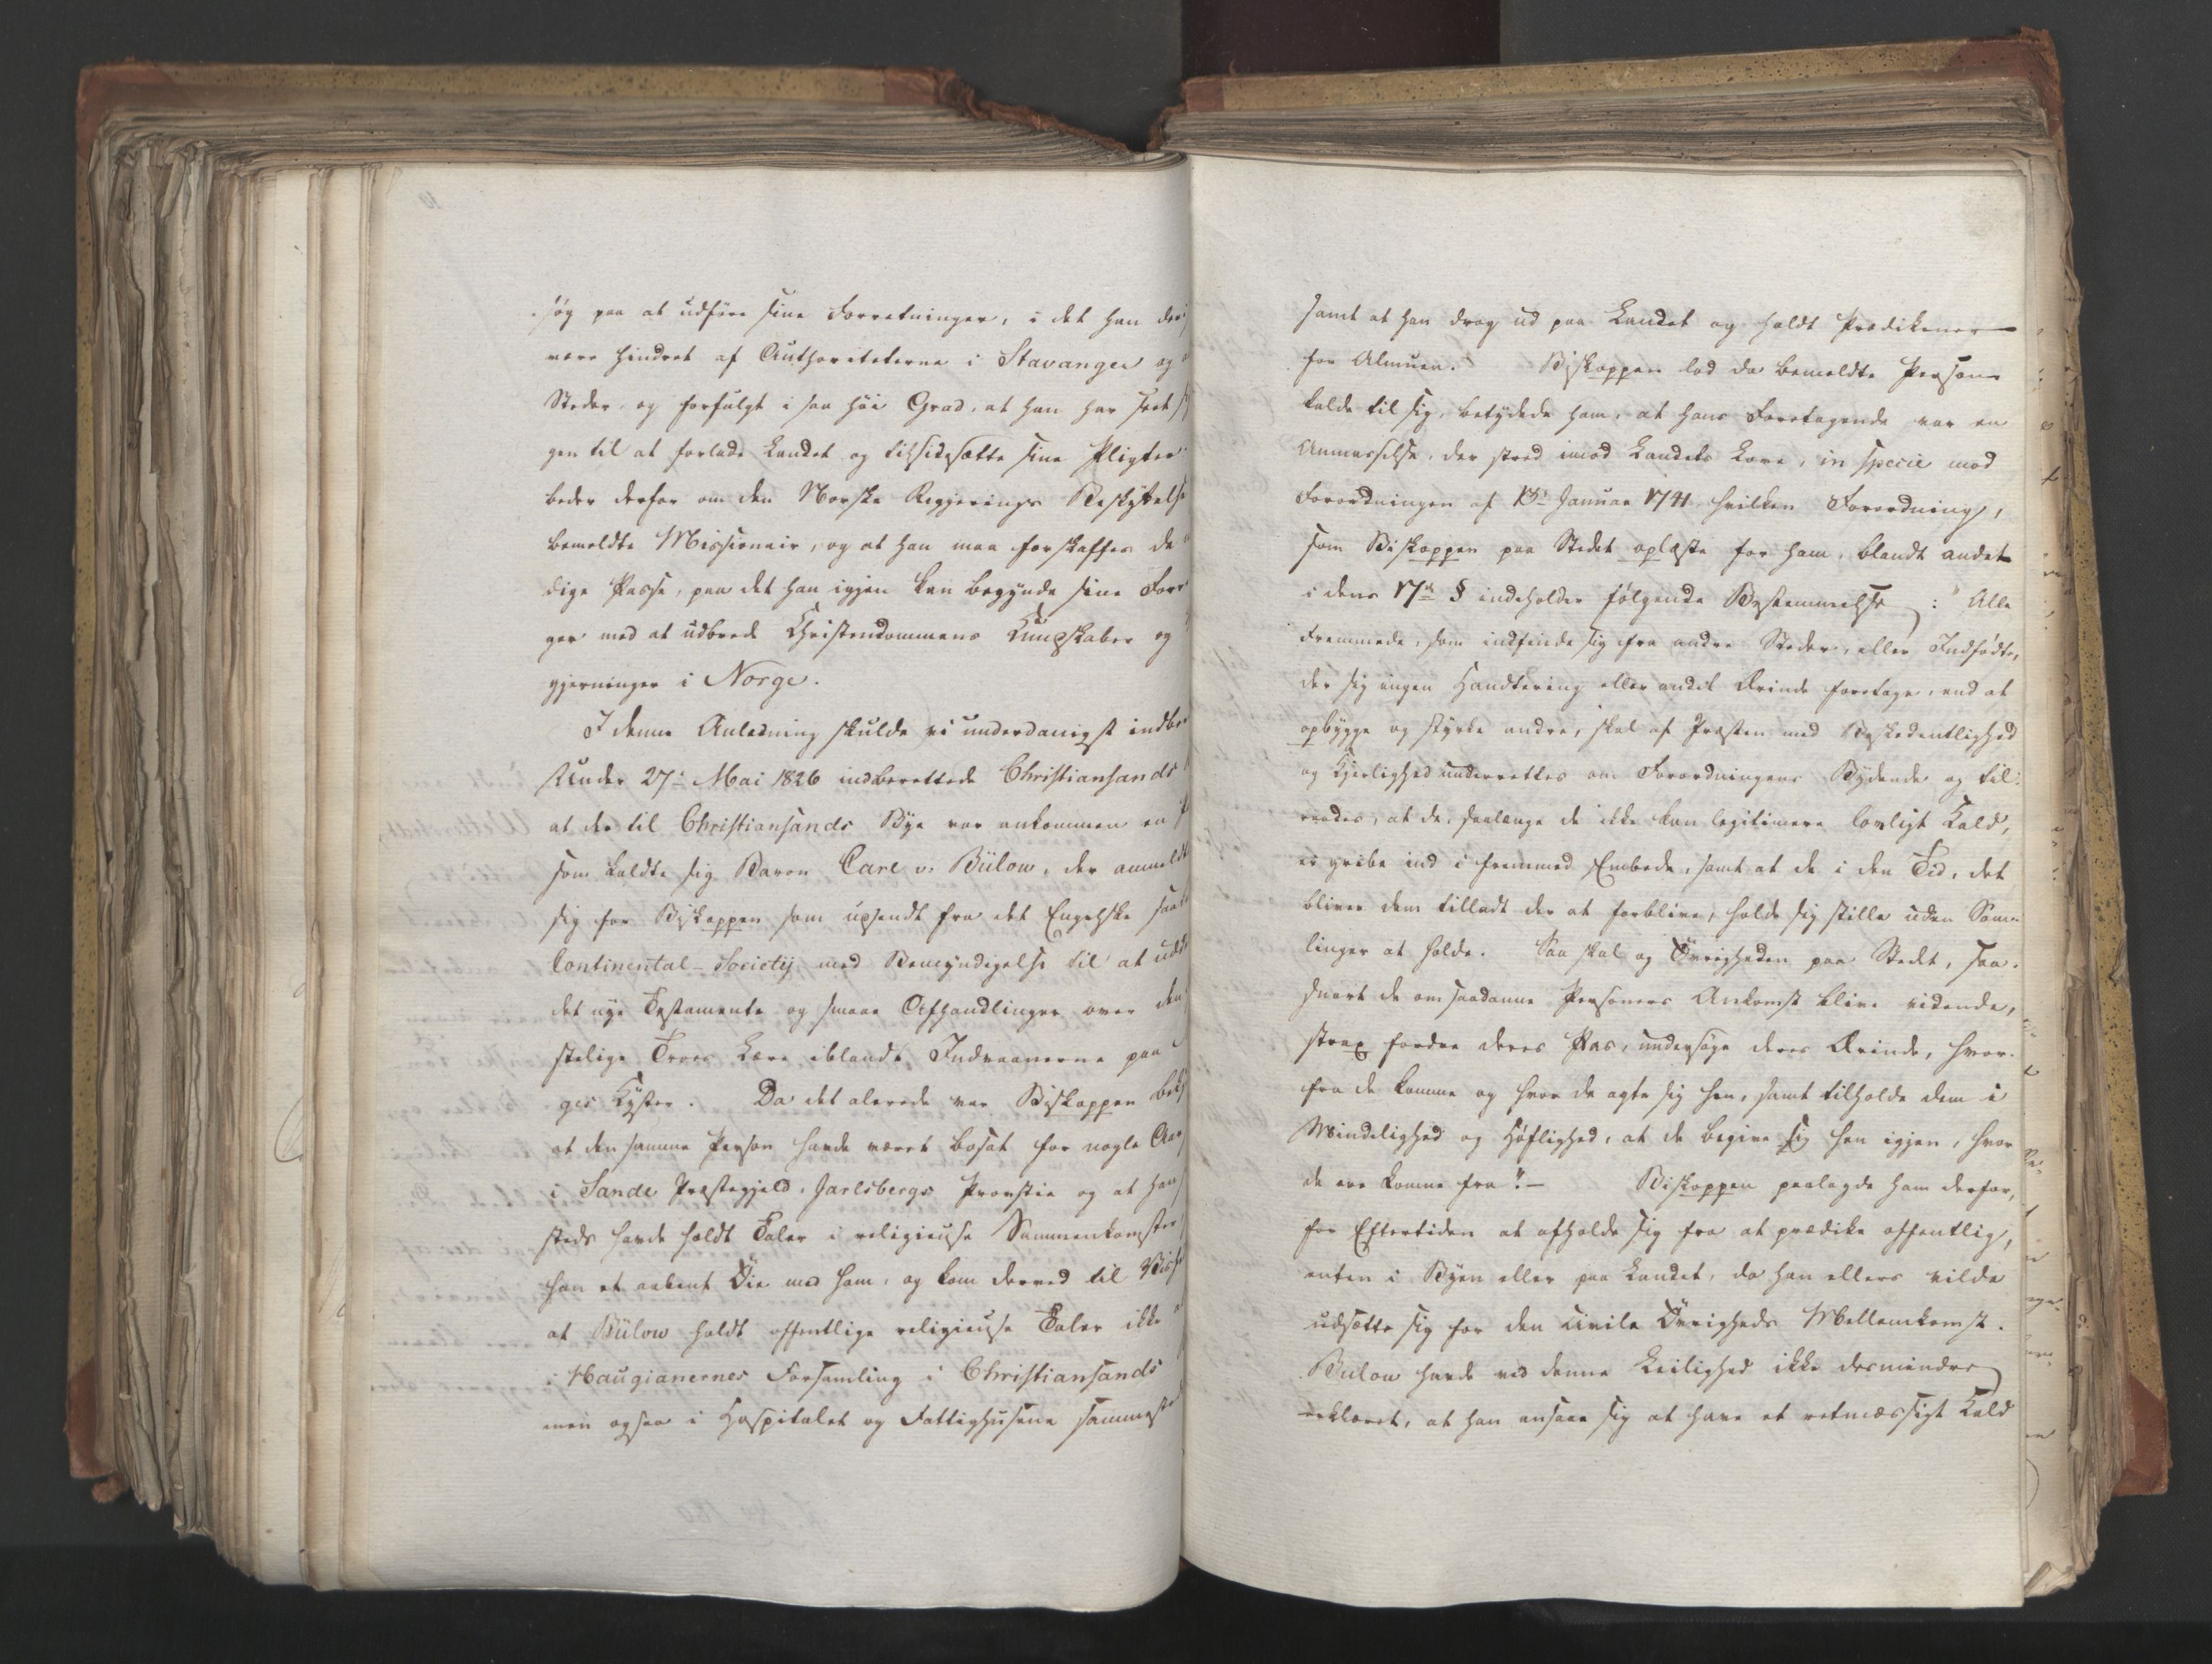 søg paa at udføre sine Forretninger, i det han der
være hindret af Authoriteterne i Stavanger og
Steder, og forfulgt i saa høi Grad, at han har seet
gen til at forlade Landet og tilsidesætte sine Pligter
beder derfor om den Norske Regjerings Beskyttelse
bemeldte Missionair, og at han maa forskaffes de
dige Passe, paa det han igjen kan begynde sine Forr
ger med at udbrede Christendommens Kundskaber og
gjerninger i Norge.
I denne Anledning skulde vi underdanigst indbe
Under 27de Mai 1826 indberettede Christiansands
at der til Christiansands Bye var ankommen en
som kaldte sig Baron Carl v. Bülow, der anmeldte
sig for Biskoppen som udsendt fra det Engelske saa
Continental-Society, med Bemyndigelse til at udd
det nye Testamente og smaae Afhandlinger over den
stelige Troes Lære iblandt Indvaanerne paa
ges Kyster. Da det alerede var Biskoppen bek
at den samme Person havde været bosat for nogle Aar
i Sande Præstegjeld, Jarlsbergs Provstie og at han
steds havde holdt Taler i religieuse Sammenkomster
han et aabent Øie med ham, og kom derved til Viss
at Bülow holdt offentlige religieuse Taler ikke
i Haugianernes Forsamling i Christiansands
men ogsaa i Hospitalet og Fattighusene sammest
samt at han drog ud paa Landet og holdt Prædikener
for Almuen. Biskoppen lod da bemeldte Person
kalde til sig, betydede ham, at hans Foretagende var en
Anmasselse, der stred imod Landets Love, in specie mod
Forordningen af 13de Januar 1741 hvilken Forordning,
som Biskoppen paa Stedet oplæste for ham, blandt andet
i dens 17de § indeholder følgende Bestemmelse: "Alle
Fremmede, som indfinde sig fra andre Steder, eller Indfødte,
der sig ingen Handtering eller andet Ærinde foretage, end at
opbygge og styrke andre, skal af Præsten med Beskedentlighed
og Kjerlighed underrettes om Forordningens Bydende og til-
raades, at de, saalænge de ikke kan legitimere lovligt Kald,
ei gribe ind i fremmed Embede, samt at de i den Tid, det
bliver dem tilladt der at forblive, holde sig stille uden Sam-
linger at holde. Saa skal og Øvrigheden paa Stedet, saa-
snart de om saadanne Personers Ankomst blive vidende,
strax fordre deres Pas, undersøge deres Ærinde, hvor-
fra de komme og hvor de agte sig hen, samt tilholde dem i
Mindelighed og Høflighed, at de begive sig hen igjen, hvor
de ere komne fra". - Biskoppen paalagde ham derfor,
for Eftertiden at afholde sig fra at prædike offentlig,
enten i Byen eller paa Landet, da han ellers vilde
udsætte sig for den civile Øvrigheds Mellemkomst.
Bülow havde ved denne Leilighed ikke desmindre
erklæret, at han ansaae sig at have et retmæssigt Kald